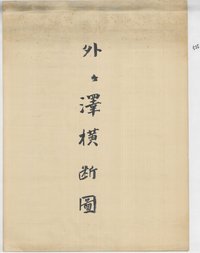 外々澤横断圖